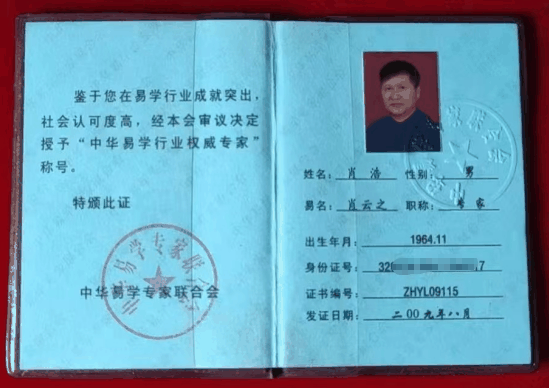 鉴于您在易学行业成就突出，
社会认可度高，经本会审议决定
授予“中华易学行业权威专家”
称号。
特颁此证
中华易学专家联合会
易学专家联
姓名：肖浩 性别：男
易名：肖云之 职称：专家
出生年月：1964.11
身份证号：32 7
证书编号：ZHYL09115
发证日期：二00九年八月